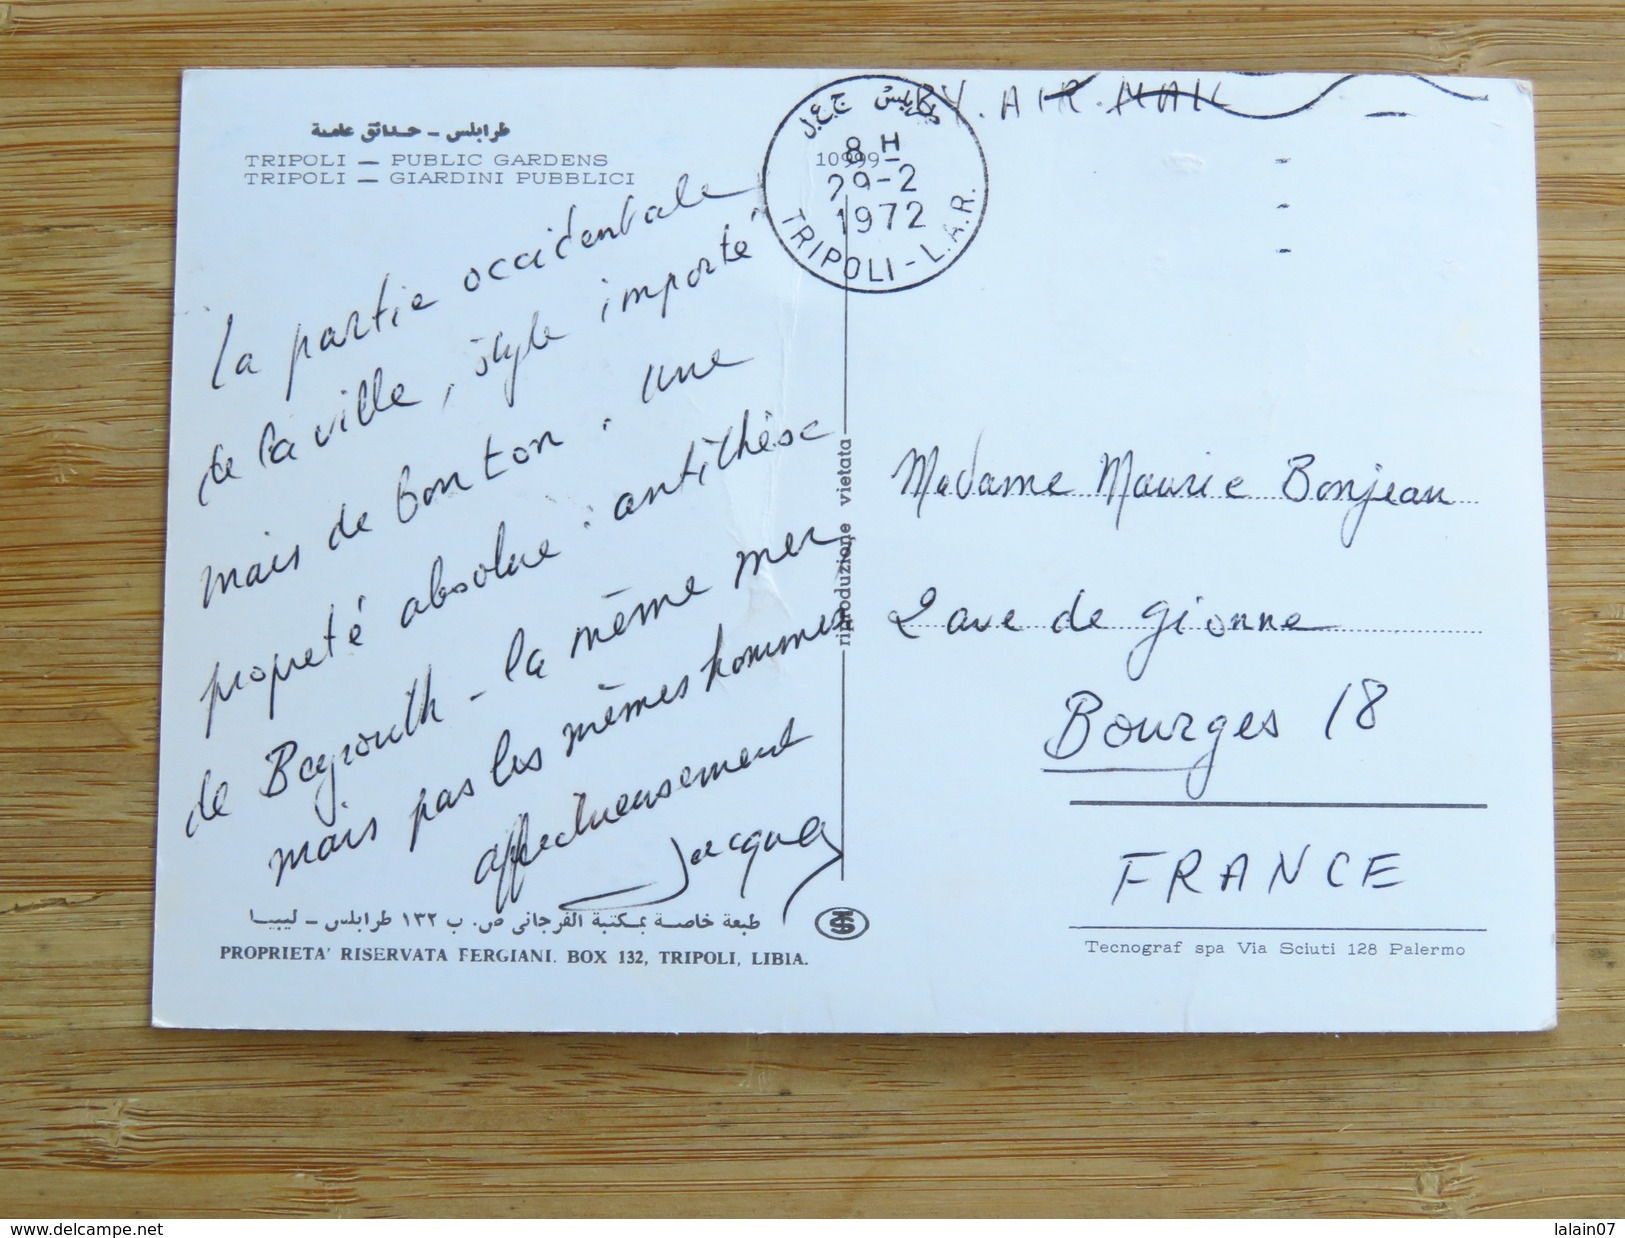 طرابلس - حدائق عامة
TRIPOLI — PUBLIC GARDENS
TRIPOLI — GIARDINI PUBBLICI
La partie occidentale
de la ville, style importé
mais de bon ton. une
propreté absolue : antithèse
de Beyrouth - la même mer
mais pas les mêmes hommes
affectueusement
Jacques
طبعة خاصة بمكتبة الفرجاني ص. ب ١٣٢ طرابلس - ليبيا
PROPRIETA' RISERVATA FERGIANI. BOX 132, TRIPOLI, LIBIA.
riproduzione vietata
10999
طرابلس ج.ع.ل
8 H
29-2
1972
TRIPOLI - L.A.R.
BY. AIR. MAIL
Madame Maurice Bonjean
2 ave de Gionne
Bourges 18
FRANCE
Tecnograf spa Via Sciuti 128 Palermo
www.delcampe.net
lalain07